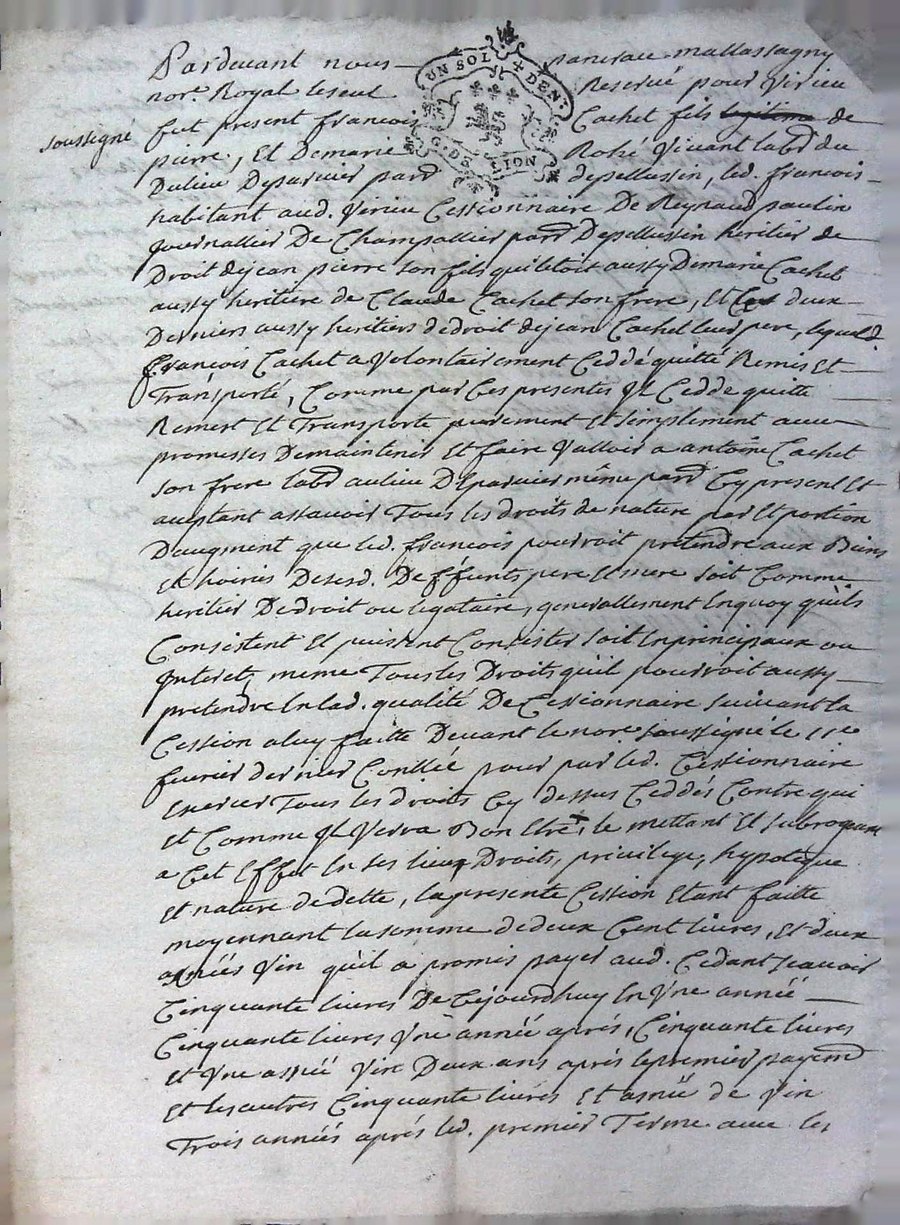 UN SOL + DEN.
G. DE LION
Pardevant nous pancrau mallassagny
nore. Royal le seul Reservé pour Virieu
soussigné
fut present francois Cachet fils legitime de
pierre, Et Demarie Rohé Vivant labd du
Dulieu Deparuier pard depellussin, led. francois
habitant aud. Virieu Cessionnaire De Reynaud paulin
journallier De Champallier pard Depellussin heritier de
Droit dejean pierre son fils qui letoit aussy Demarie Cachet
aussy heritiere de Claude Cachet son frere, Et Ces deux
Derniers aussy heritiers dedroit dejean Cachet leur pere, lequel
francois Cachet a Volontairement Ceddé quitté Remis Et
Transporté, Comme par Ces presentes Il Cedde quitte
Remest Et Transporte purement Et simplement avec
promesses Demaintenir Et faire Valloir a antoine Cachet
son frere labd au lieu Deparuier même pard Cy present Et
aceptant assavoir Tous les droits de nature part Et portion
Daugment que led. francois pourroit pretendre aux Biens
Et hoiries Desesd. Deffunts pere Et mere soit Comme
heritier Dedroit ou legataire, generallement Enquoy quils
Consistent Et puissent Consister soit Enprincipaux ou
Interets, meme Tous les Droits quil pourroit aussy
pretendre En lad. qualité De Cessionnaire suivant la
Cession aluy faitte Devant le nore soussigné le 11e
fevrier dernier Conllée pour par led. Cessionnaire
Exercer Tous les droits Cy dessus Ceddés Contre qui
Et Comme Il Verra Bon Etre, le mettant Et subrogeant
a Cet Effet En ses lieux Droits, privilege, hypoteque
Et nature de dette, la presente Cession Etant faitte
moyennant la somme de deux Cent livres, Et deux
asnées Vin qu'il a promis payer aud. Cedant sçavoir
Cinquante livres De Cejourdhuy En Une année
Cinquante livres Une année aprés, Cinquante livres
Et Une asnée Vin Deux ans aprés le premier payemt
Et les autres Cinquante livres Et asnée de Vin
Trois années aprés led. premier Terme avec les